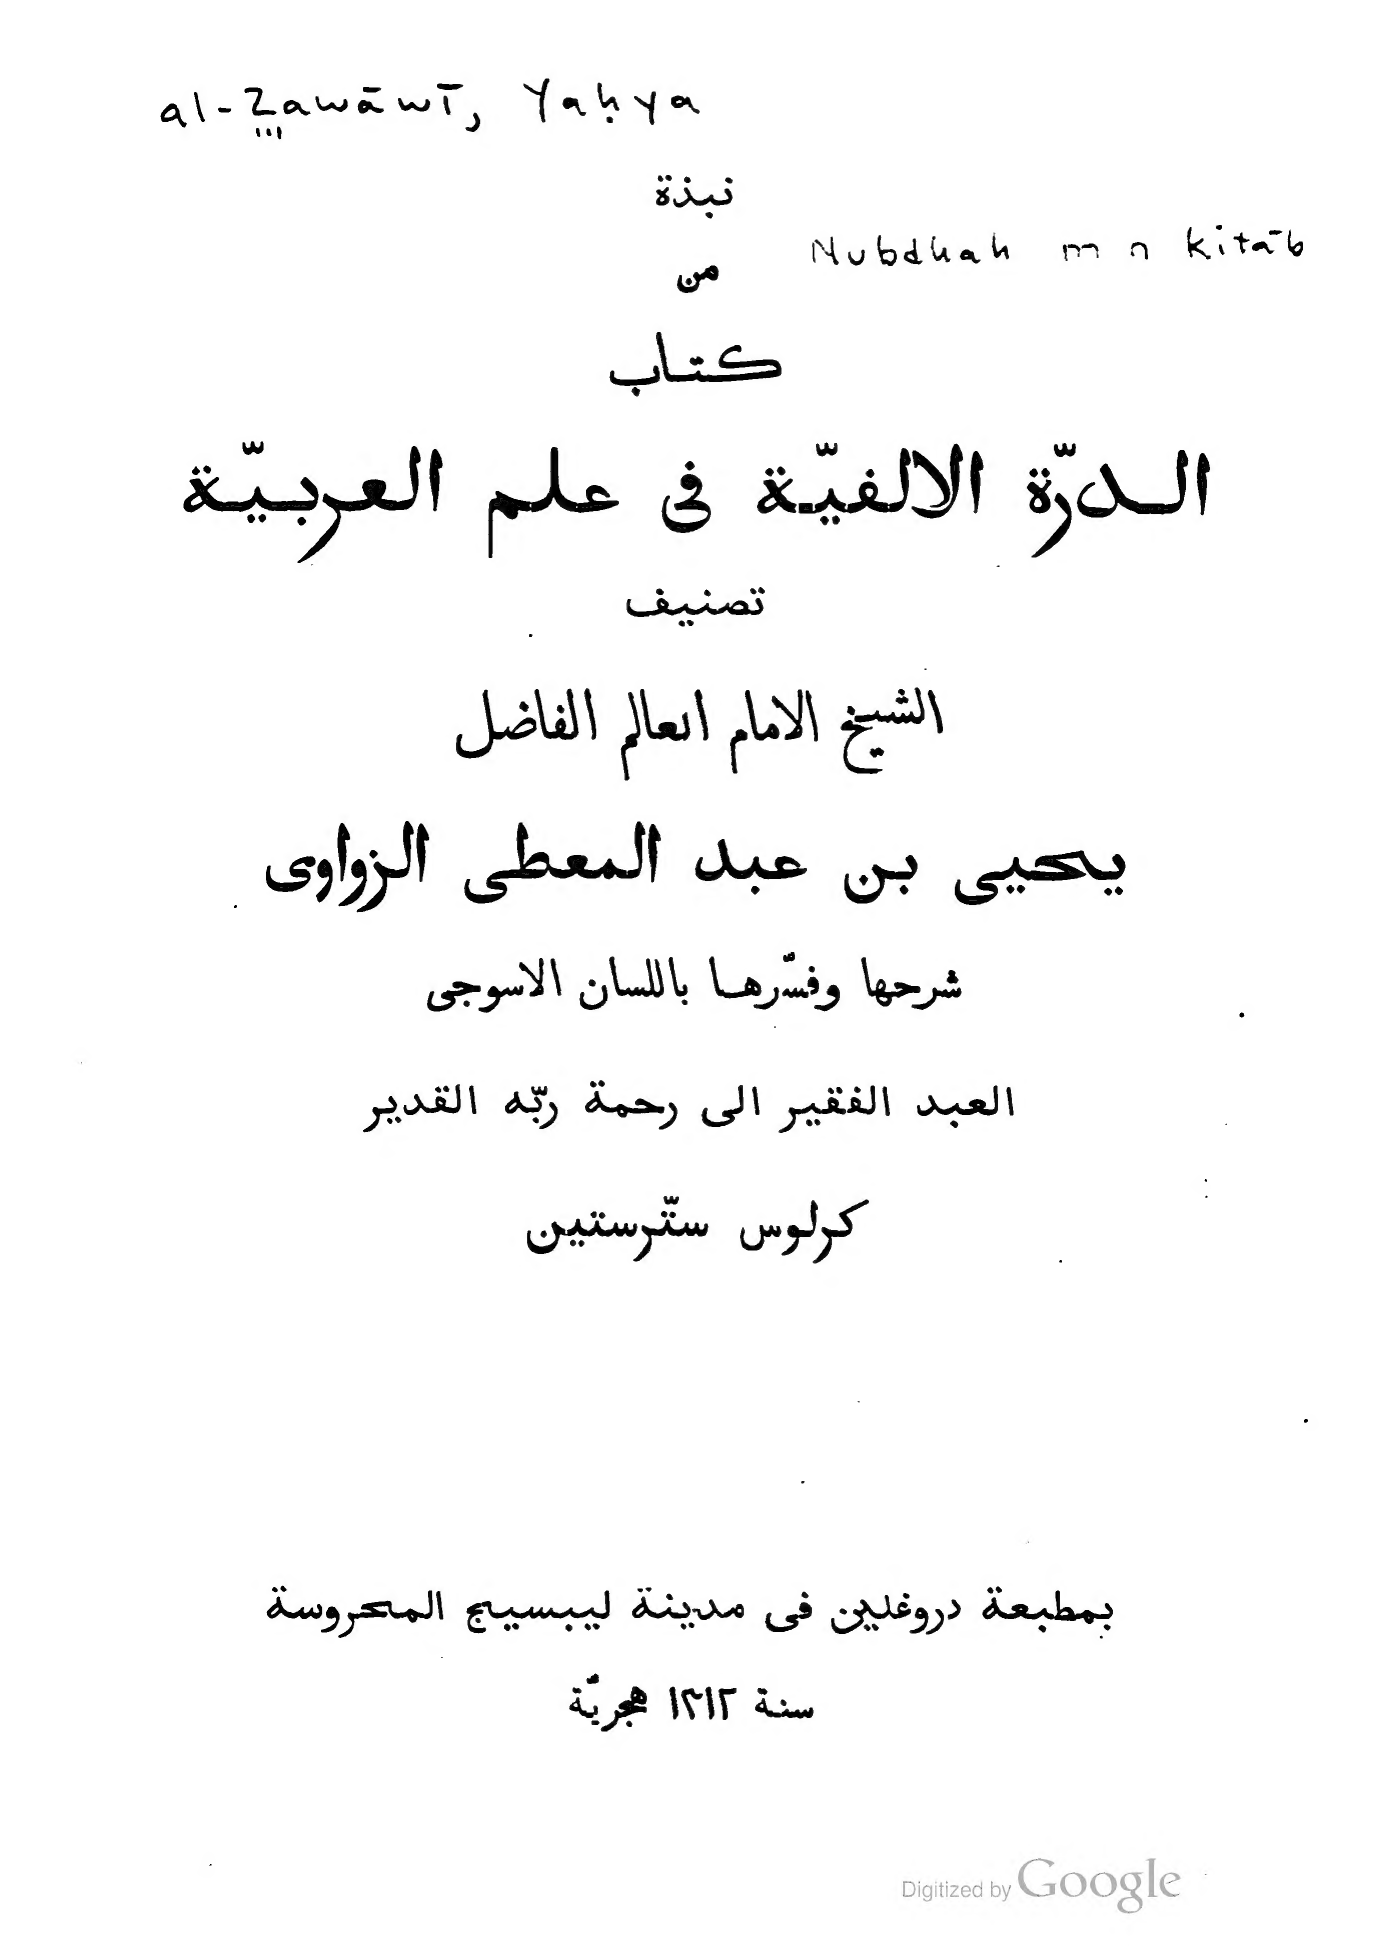 al-Zawāwī, Yaḥya
نبذة
Nubdhah m n kitāb
من
كتاب
الدرّة الالفيّة فى علم العربيّة
تصنيف
الشيخ الامام العالم الفاضل
يحيى بن عبد المعطى الزواوى
شرحها وفسّرها باللسان الاسوجى
العبد الفقير الى رحمة ربّه القدير
كرلوس ستّرستين
بمطبعة دروغلين فى مدينة ليبسيج المحروسة
سنة ١٣١٢ هجريّة
Digitized by Google